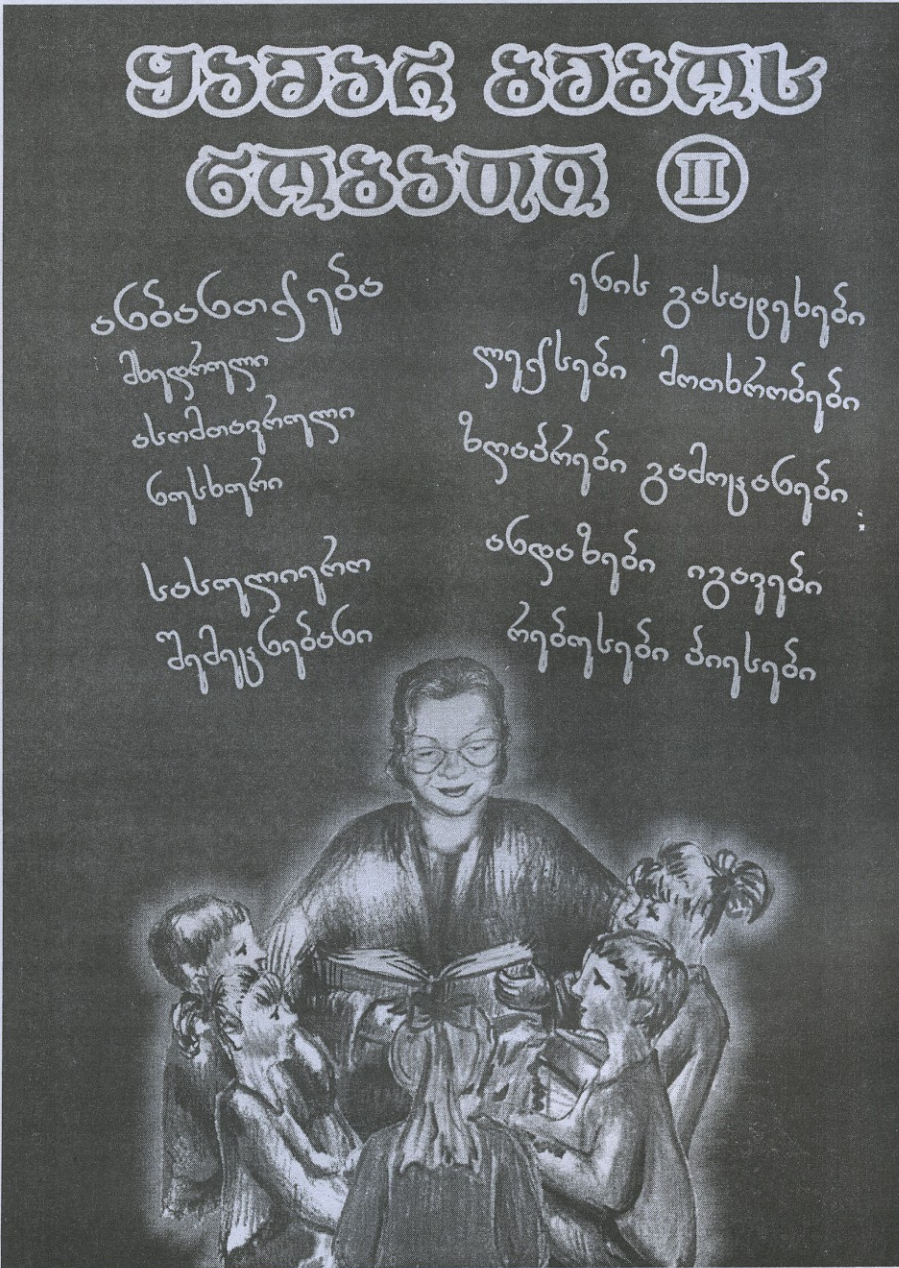 ბებოს
ნობათი II
ანბანთქება
მხედრული
ასომთავრული
ნუსხური
სასულიერო
შემეცნებანი
ენის გასატეხები
ლექსები მოთხრობები
ზღაპრები გამოცანები
ანდაზები იგავები
რებუსები პიესები